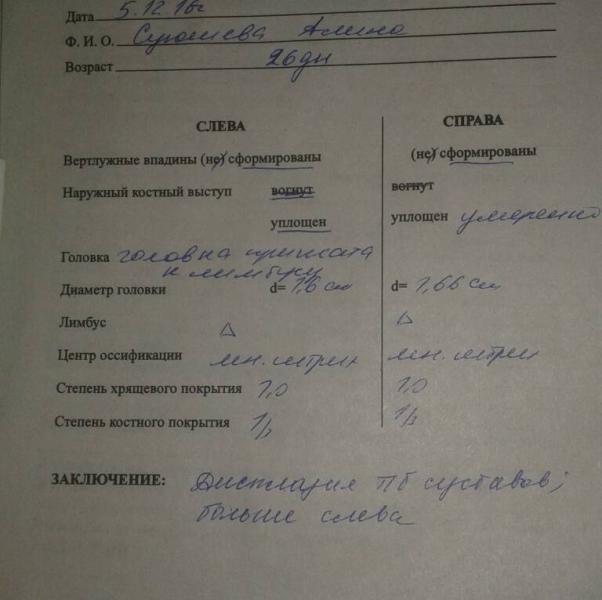 Дата 5.12.16г
Ф. И. О. Алина
Возраст 26дн
СЛЕВА СПРАВА
Вертлужные впадины (не) сформированы (не) сформированы
Наружный костный выступ вогнут вогнут
уплощен уплощен умеренно
Головка головка прижата
к лимбусу
Диаметр головки d= 1,6 см d= 1,66 см
Лимбус Δ Δ
Центр оссификации
Степень хрящевого покрытия 1,0 1,0
Степень костного покрытия 1/3 1/3
ЗАКЛЮЧЕНИЕ: Дисплазия ТБ суставов;
больше слева